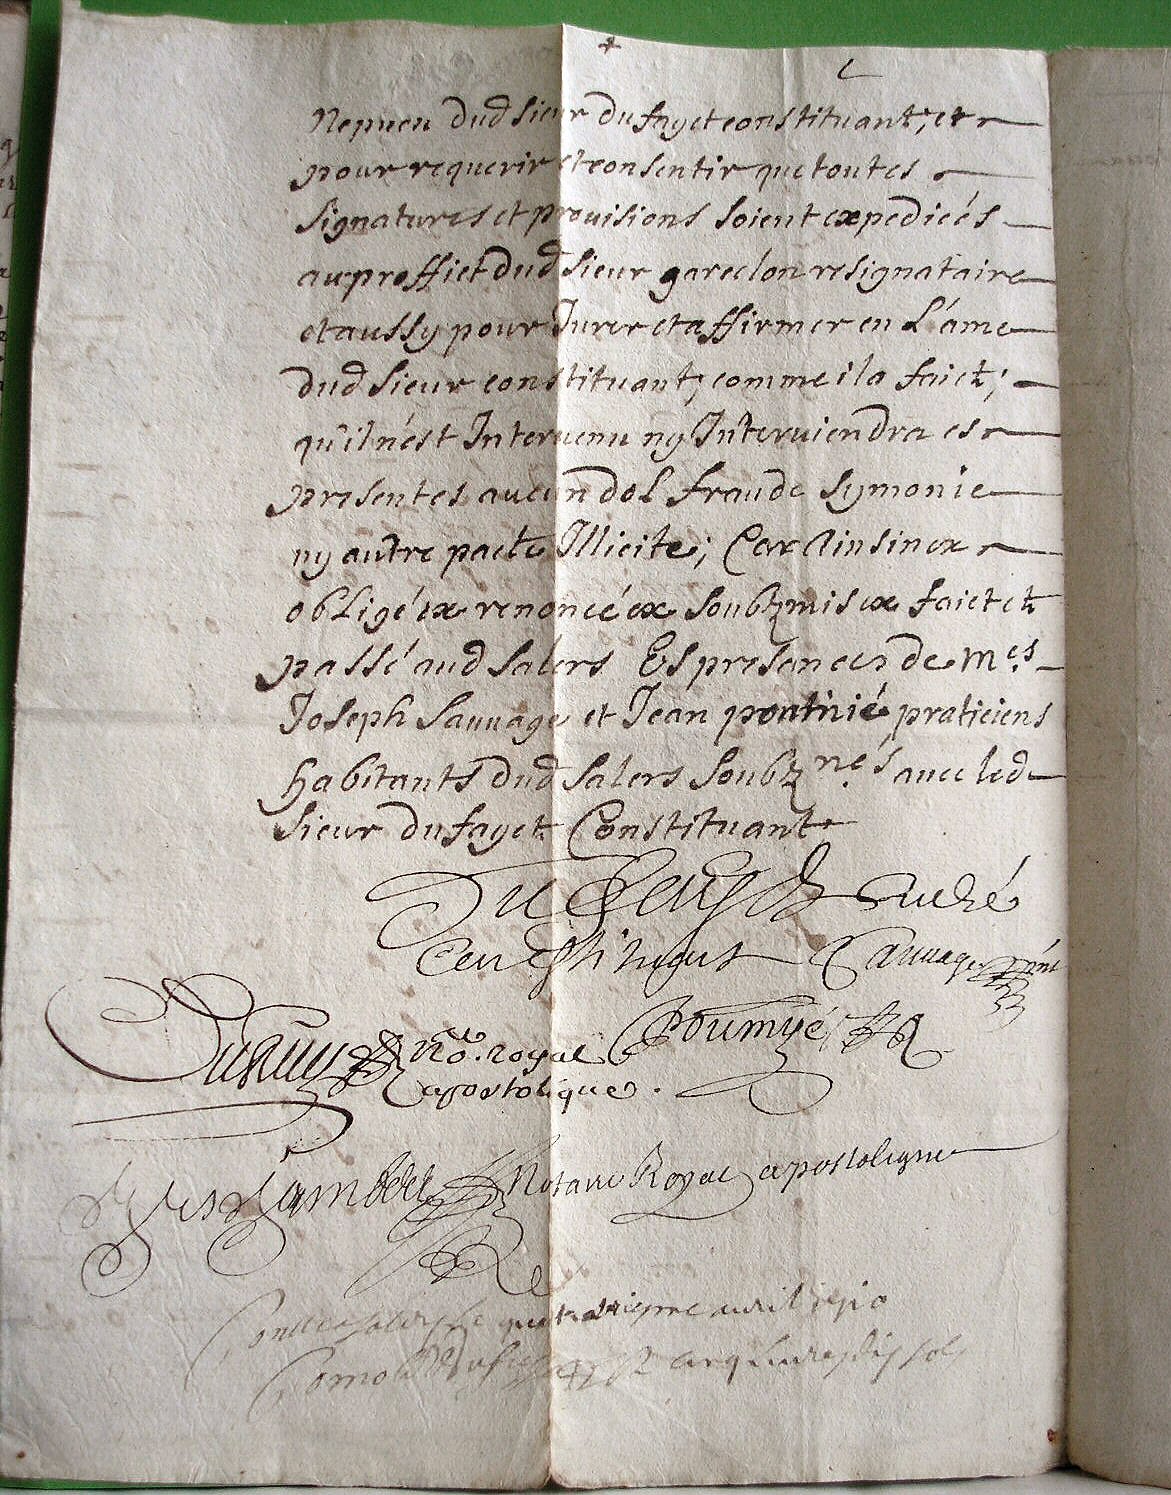 Nepueu dud sieur du fayet constituant; et
pour requerir et consentir que toutes
signatures et prouisions soient expedieés
au proffict dud sieur gareclon resignataire
et aussy pour Jurer et affirmer en L'ame
dud sieur constituant; comme il a faict;
qu'il n'est Interuenu ny Interuiendra es
presentes aucun dol fraude symonie
ny autre pacte Illicite; Car Ainsin ex
obligé ex renoncé ex soubzmis ex faict et
passé aud Salers Es presences de mes
Joseph Sauuage et Jean poumié praticiens
habitants dud Salers soubznés auec led
sieur du fayet Constituant
Du Fayet Curé
Constituant Sauuage pnt
no. royal Poumyé
apostolique.
Notaire Royal apostolique
auril 1710